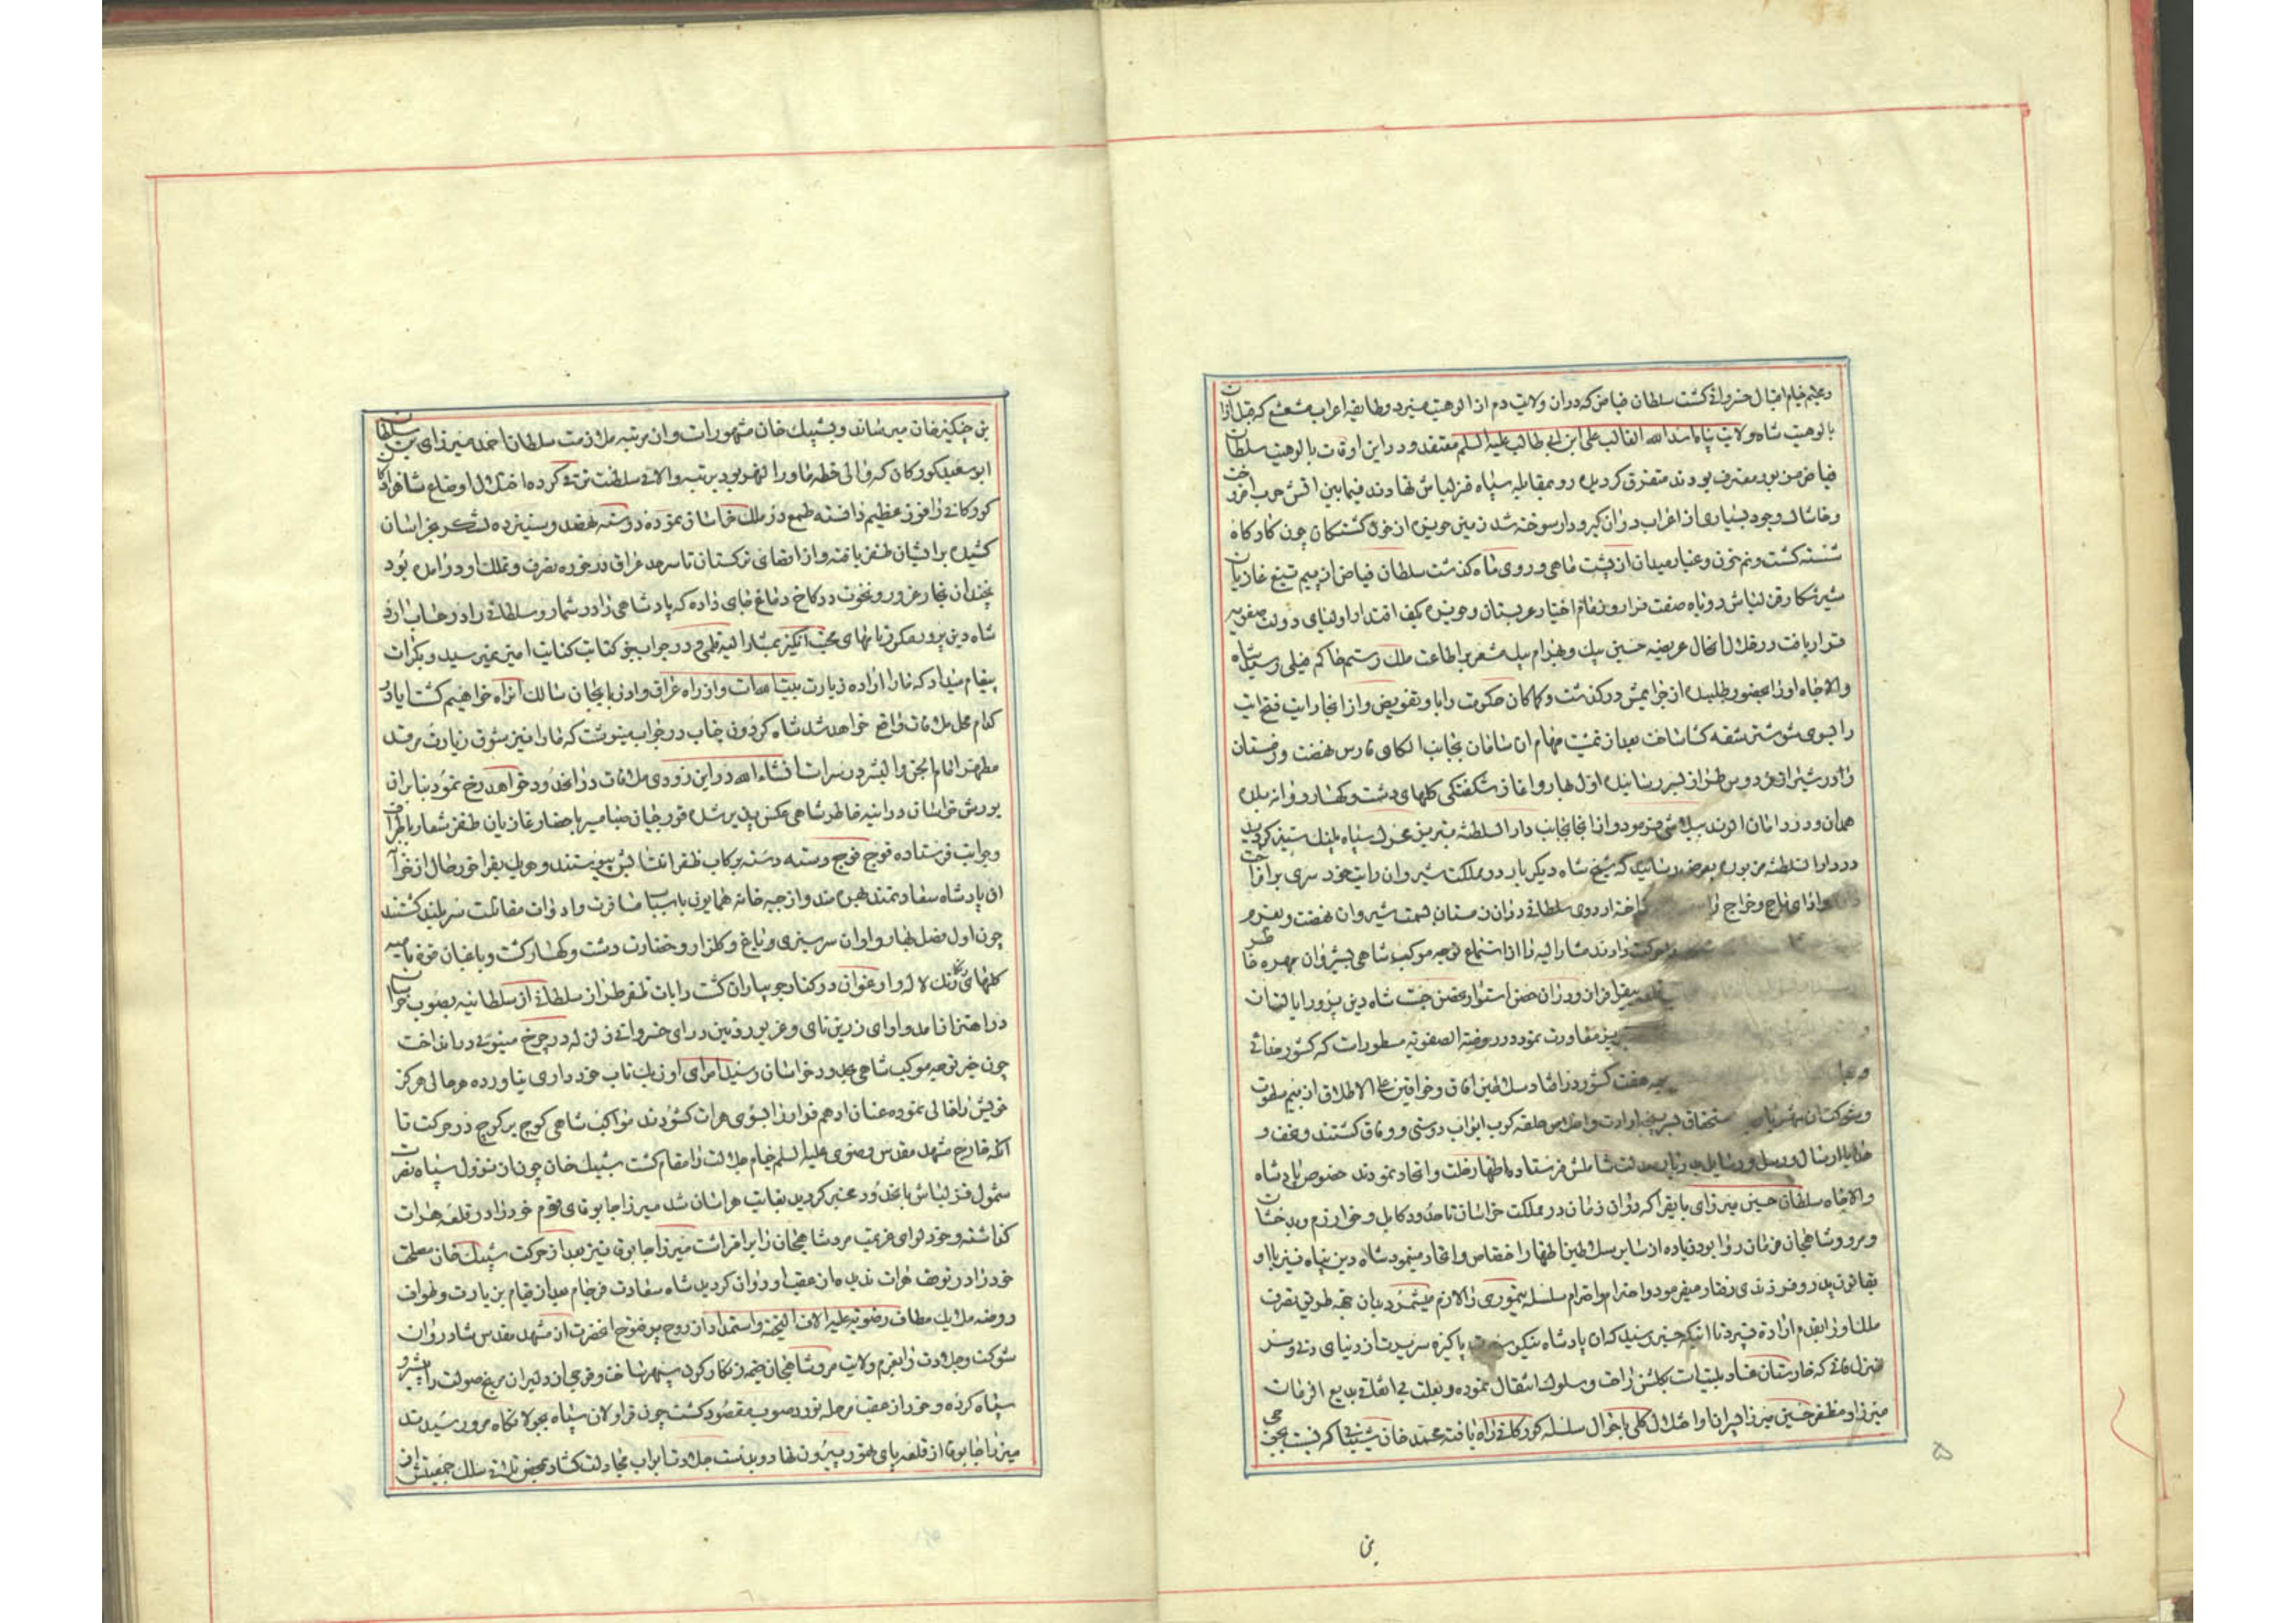 و مخیم خیام اقبال خسروانی کشت سلطان فیاض که دران ولایت دم از الوهیت میزد و طایفه اعراب مشعشع که قبل ازان
بالوهیت شاه ولایت پناه اسد الله الغالب علی ابن ابی طالب علیه السلم معتقد و در این اوقات بالوهیت سلطان
فیاض مزبور معترف بودند متفرق کردیده رو بمقابله سپاه قزلباش نهادند فیمابین اتش حرب افروخت
و خاشاک وجود بسیاری از اعراب دران کیرودار سوخته شد زمین حویزه از خون کشتکان چون کاو کاه
شسته کشت و نم خون و غبار میدان از پشت ماهی و روی ماه کذشت سلطان فیاض از بیم تیغ غازیان
شیر شکار قزلباش روباه صفت فرار و زمام اختیار عربستان و حویزه بکف اقتدار اولیای دولت صفویه
قرار یافت در خلال انحال عریضه حسین بیک و بهرام بیک مشعر بر اطاعت ملک رستم حاکم فیلی رسیده شاه
والاجاه او را بحضور طلبیده از جرایمش درکذشت و کماکان حکومت را باو تفویض و از انجا رایت فتح ایت
را بسوی شوشتر شقه کشا ساخت بعد از تمشیت مهام ان سامان بجانب الکای فارس نهضت و زمستان
را در شیراز فردوس طراز بسر رسانیده اول بهار و اغاز شکفتکی کلهای دشت و کهسار روانه بلده
همدان و در دامان الوند ییلامشی فرمود و از انجا بجانب دار السلطنه تبریز محرک سپاه پلنک ستیز کردید
در دار السلطنه مزبوره بعرض رسانید که شیخ شاه دیکر بار در مملکت شیروان رایت خود سری برافراخت
و از ادای باج و خراج اردوی سلطانی دران زمستان بسمت شیروان نهضت و بعزم
حرکت دادند مشارالیه را از استماع توجه موکب شاهی بشیروان بهره خاطر
بیقرار و دران حصن استوار متحصن جست شاه دین پرور ایالت ان
تبریز معاودت نمود در روضة الصفویه مسطورات که کشور خدائی
هفت کشور دراند سلاطین افاق و خواقین علی الاطلاق از بیم سطوت
و شوکت ان شهریار استحقاق ارادت و اخلاص حلقه کوب ابواب دوستی و وفاق کشتند و تحف و
هدایا ارسال و رسل و رسایل شاملش فرستاده اظهار خلت و اتحاد نمودند خصوص پادشاه
والاجاه سلطان حسین میرزای بایقرا که دران زمان در مملکت خراسان تا حدود کابل و خوارزم و بدخشان
و مرو و شاهیجان فرمان روا بود زیاده از سایر سلاطین اظهار اختصاص و اتحاد مینمود شاه دین پناه نیز با او
بقانون پدر و فرزندی رفتار میفرمود و احترام و احترام سلسله تیموری را لازم میشمرد بدان جهه طریق تصرف
ملک او را بقدم اراده نسپرد تا اینکه خبر رسید که ان پادشاه نیکو سیرت پاکیزه سریرت از دنیای دنی و سر
منزل فانی که خارستان عناد بلیت است بکلشن راحت و سلوک انتقال نموده و بعلت بی اتفاقی بدیع الزمان
میرزا و مظفر حسین میرزا پسران او اختلال کلی باحوال سلسله کورکانی راه یافته محمد خان شیبانی که نسبت بجوجی
بن
بن چنکیز خان میرساند و بشیبک خان مشهور است و ان مرتبه ملازمت سلطان احمد میرزای بن سلطان
ابو سعید کورکان که والی خطه ماورا النهر بود برتبه والای سلطنت ترقی کرده اختلال اوضاع شاهزادکان
کورکانی را فوزی عظیم دانسته طمع در ملک خراسان نموده در سنه نهصد و سیزده لشکر بخراسان
کشیده بر ایشان ظفر یافته و از اقصای ترکستان تا سرحد عراق در حوزه تصرف و تملک او درامده بود
چندان بخار غرور و نخوت در کاخ دماغ جای داده که پادشاهی را در شمار و سلطانی را در حساب اورد
شاه دین پرور مکرر نامهای محبت انکیز بمشارالیه قلمی و در جواب بجز کتابت کنایت امیز نمیرسید و بکرات
پیغام میداد که مارا اراده زیارت بیت الله است و از راه عراق و اذربایجان سالک انراه خواهیم کشت ایا در
کدام محل ملاقات واقع خواهد شد شاه کردون جناب در جواب مینوشت که مارا نیز شوق زیارت مرقد
مطهر امام الجن و البشر در سرات انشاء الله در این زودی ملاقات در انحدود خواهد رخ نمود بنابران
یورش خراسان در ائینه خاطر شاهی عکس پذیر شده قورچیان صبا مسیر باحضار غازیان ظفر شعار باطراف
و جوانب فرستاده فوج فوج دسته دسته برکاب ظفر انتسابش پیوستند و هر یک بفراخور حال از خوان
ان پادشاه سعادتمند بهره مند و از جبه خانه همایون باسباب مسافرت و ادوات مقاتلت سربلند کشتند
چون اول فصل بهار و اوان سرسبزی و باغ و کلزار و خضارت دشت و کهسار کشت و باغبان قوه نامیه
کلهای رنکارنک لاله و ارغوان در کنار جویباران کشت رایات ظفر طراز سلطانی از سلطانیه بصوب خراسان
در اهتزاز امد و اوای زرین نای و غریو روئین درای خسروانی زلزله در چرخ مینوئی درانداخت
چون خبر توجه موکب شاهی بحدود خراسان رسید امرای اوزبک تاب خود داری نیاورده هر حالی مرکز
خویش را خالی نموده عنان ادهم فرار را بسوی هرات کشودند مواکب شاهی کوچ بر کوچ در حرکت تا
انکه خارج مشهد مقدس رضوی علیه السلم خیام جلالت را مقام کشت شیبک خان چون از نزول سپاه نصرت
شمول قزلباش بانحدود مخبر کردید بغایت هراسان شد میرزا جابوقای قوم خود را در قلعه هرات
کذاشته و خود لوای عزیمت مرو شاهیجان را برافراشت میرزا جابوق نیز بعد از حرکت شیبک خان مصلحت
خود را در توقف هرات ندیده از عقب او روان کردید شاه سعادت فرجام بعد از قیام بزیارت و طواف
روضه ملایک مطاف رضویه علیه الاف التحیة و استمداد از روح پر فتوح انحضرت از مشهد مقدس شادروان
شوکت و جلادت را بعزم ولایت مرو شاهیجان خیمه زنکارکون سپهر ساخت و فوجی از دلیران مریخ صولت را پیشرو
سپاه کرده و خود از عقب مرحله نورد صوب مقصود کشت چون قراولان سپاه بجولانکاه مرو رسیدند
میرزا جابوقا از قلعه پای تهور بیرون نهاد و بدست جلادت ابواب مجادلت کشاد بمحض تلاقی سلک جمعیتش از